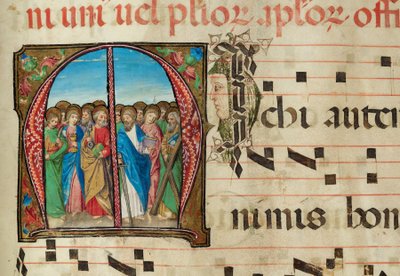 ni uni' uel plior. aplor. offi
MIchi autem
nimis hon